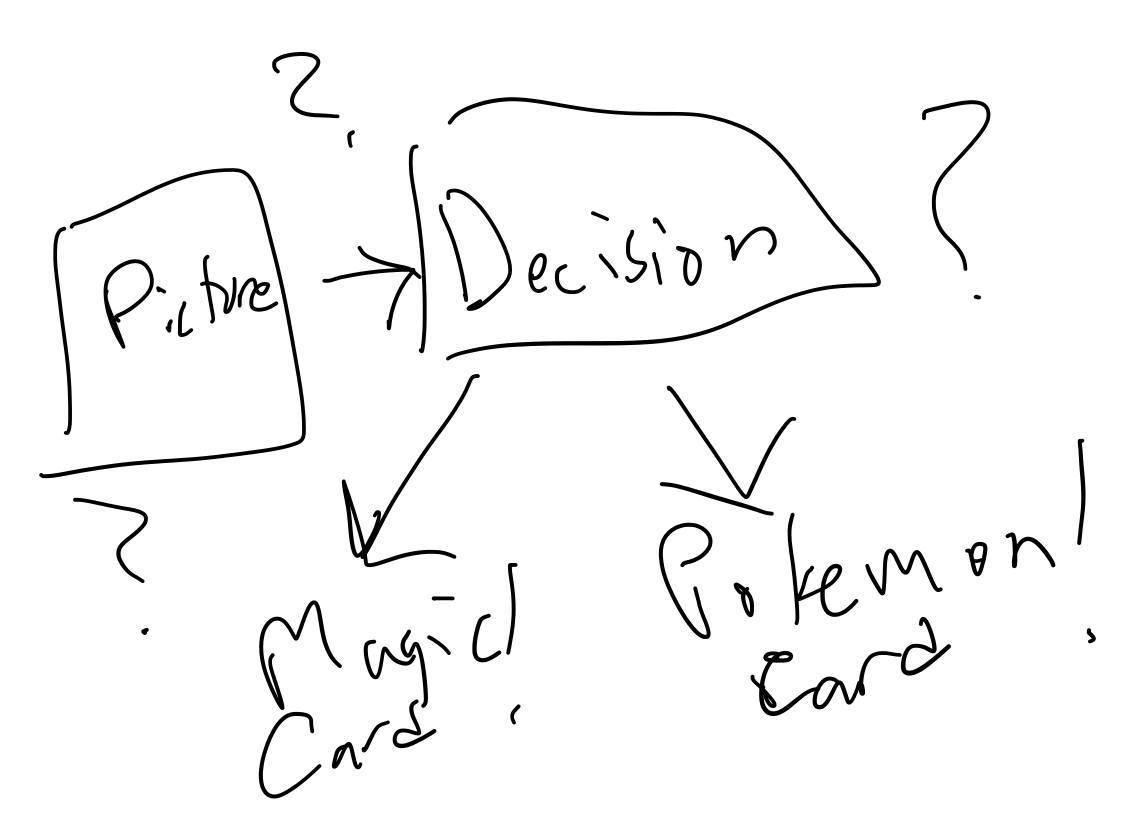 ?
?
Picture
Decision
?
Magic!
Card
Pokemon!
Card